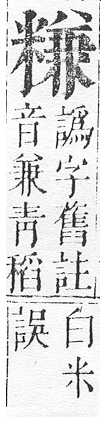 𥻧
譌字舊註
音兼青稻
白米
誤